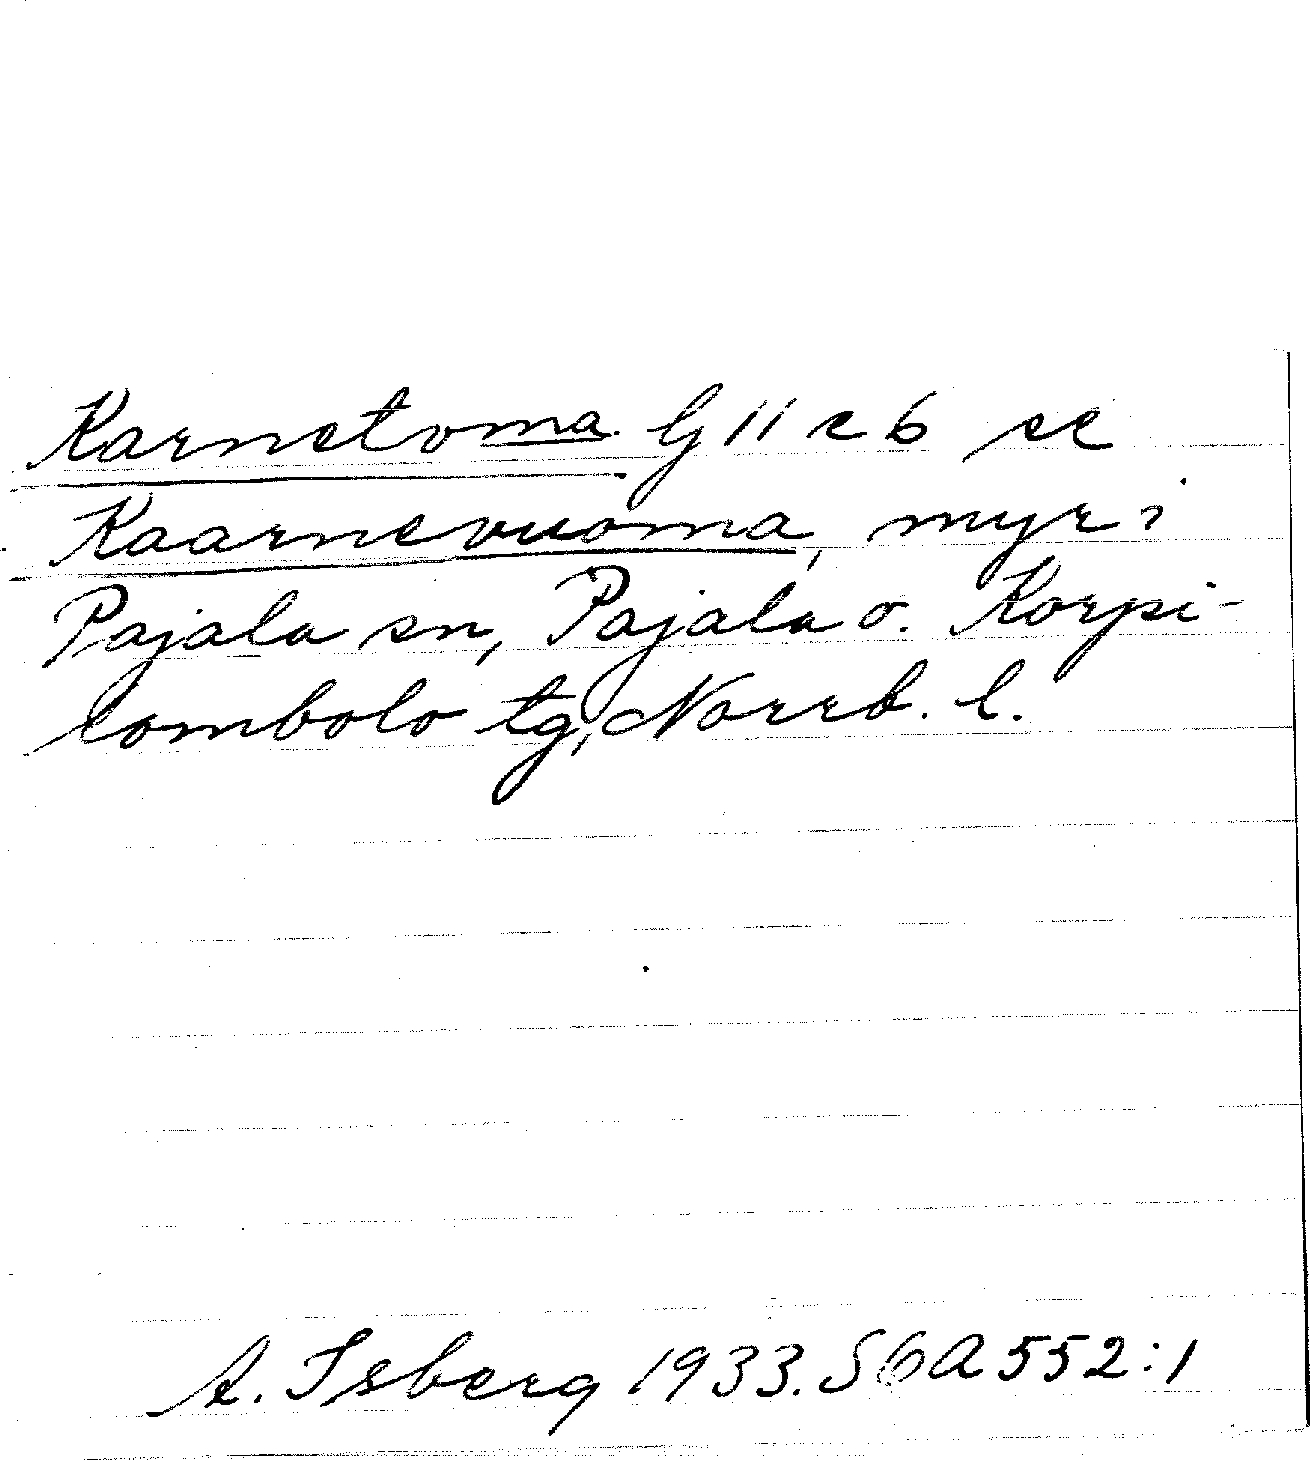 Karnetoma G 11 c 6 se
Kaarnevuoma, myr i
Pajala sn, Pajala o. Korpi-
lombolo tg, Norrb. l.
A. Isberg 1933. SGA 552:1